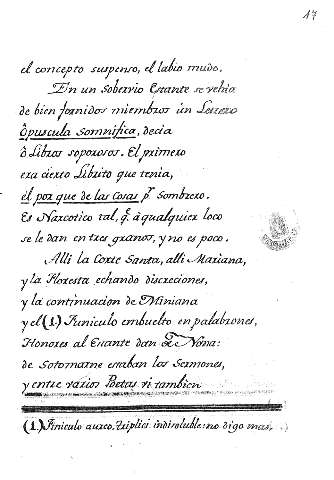 17
el concepto suspenso, el labio mudo.
En un sobervio Estante se vehia
de bien fornidos miembros un Letrero
Opuscula Somnifica, decia
ò Libros soporosos. El primero
era cierto Librito que tenia,
el por que de las Cosas pr. Sombrero.
Es Narcotico tal, q̃ à qualquier loco
se le dan en tres granos, y no es poco.
Alli la Corte Santa, alli Mariana,
y la Floresta echando discreciones,
y la continuacion de Miniana
y el (1.) Funiculo embuelto en palabrones,
Honores al Estante dan Nona:
de Sotomarne estaban los Sermones,
y entre varios Poetas vi tambien
(1.) Funiculo aureo. triplici indisoluble: no digo mas.